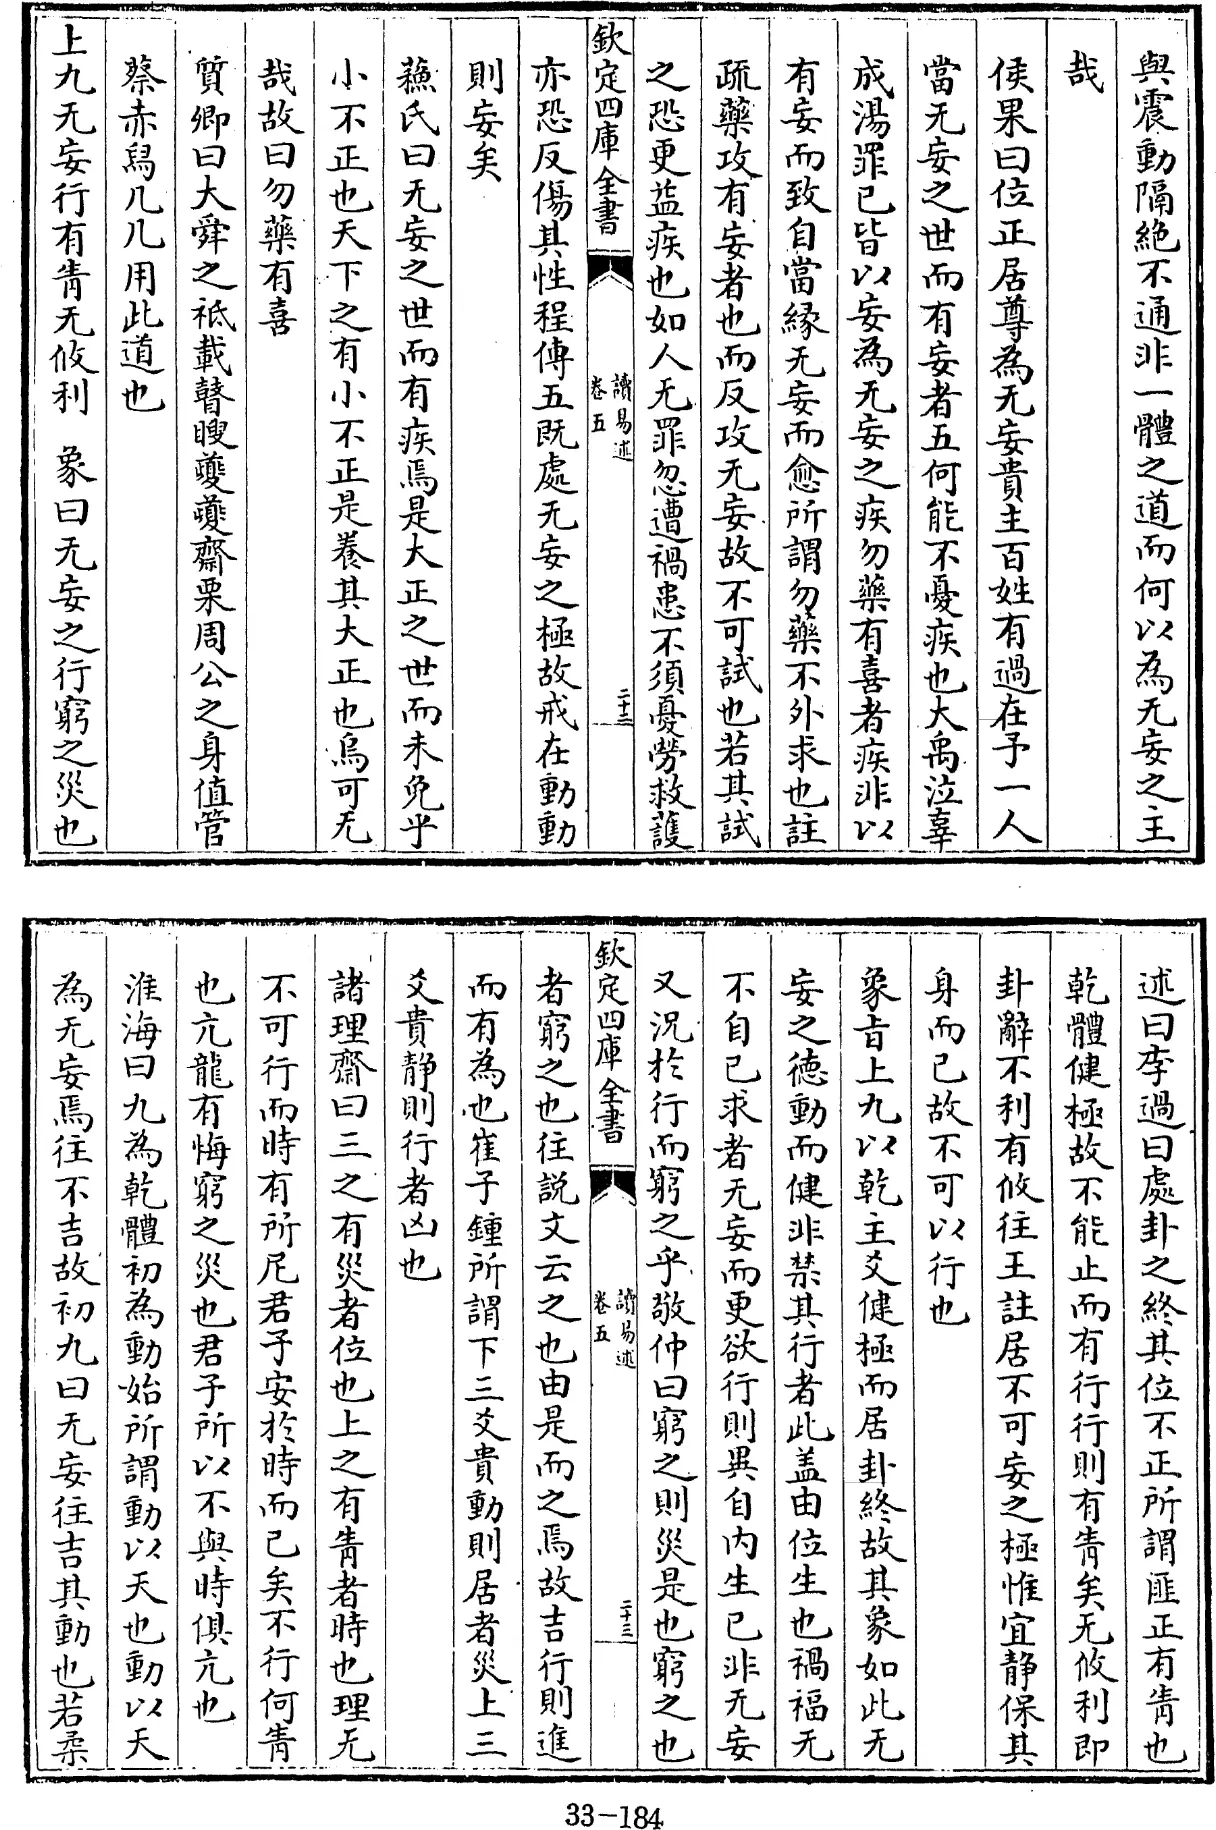 與震動隔絶不通非一體之道而何以為无妄之主
哉
侯果曰位正居尊為无妄貴主百姓有過在予一人
當无妄之世而有妄者五何能不憂疾也大禹泣辜
成湯罪已皆以妄為无妄之疾勿藥有喜者疾非以
有妄而致自當緣无妄而愈所謂勿藥不外求也註
疏藥攻有妄者也而反攻无妄故不可試也若其試
之恐更益疾也如人无罪忽遭禍患不須憂勞救護
欽定四庫全書
讀易述
卷五
二十二
亦恐反傷其性程傳五既處无妄之極故戒在動動
則妄矣
蘓氏曰无妄之世而有疾焉是大正之世而未免乎
小不正也天下之有小不正是養其大正也烏可无
哉故曰勿藥有喜
質卿曰大舜之祗載瞽瞍夔夔齋栗周公之身值管
蔡赤舄几几用此道也
上九无妄行有眚无攸利 象曰无妄之行窮之災也
述曰李過曰處卦之終其位不正所謂匪正有眚也
乾體健極故不能止而有行行則有眚矣无攸利即
卦辭不利有攸往王註居不可妄之極惟宜靜保其
身而已故不可以行也
象旨上九以乾主爻健極而居卦終故其象如此无
妄之德動而健非禁其行者此盖由位生也禍福无
不自已求者无妄而更欲行則異自内生已非无妄
又況於行而窮之乎敬仲曰窮之則災是也窮之也
欽定四庫全書
讀易述
卷五
二十三
者窮之也往説文云之也由是而之焉故吉行則進
而有為也崔子鍾所謂下三爻貴動則居者災上三
爻貴靜則行者凶也
諸理齋曰三之有災者位也上之有眚者時也理无
不可行而時有所尼君子安於時而已矣不行何眚
也亢龍有悔窮之災也君子所以不與時俱亢也
淮海曰九為乾體初為動始所謂動以天也動以天
為无妄焉往不吉故初九曰无妄往吉其動也若柔
33-184